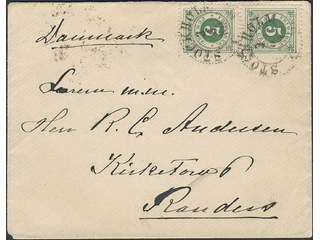 STOCKHOLM
5 5
Danmark
Herr R. C. Andersen
Kirketorv 6
Randers